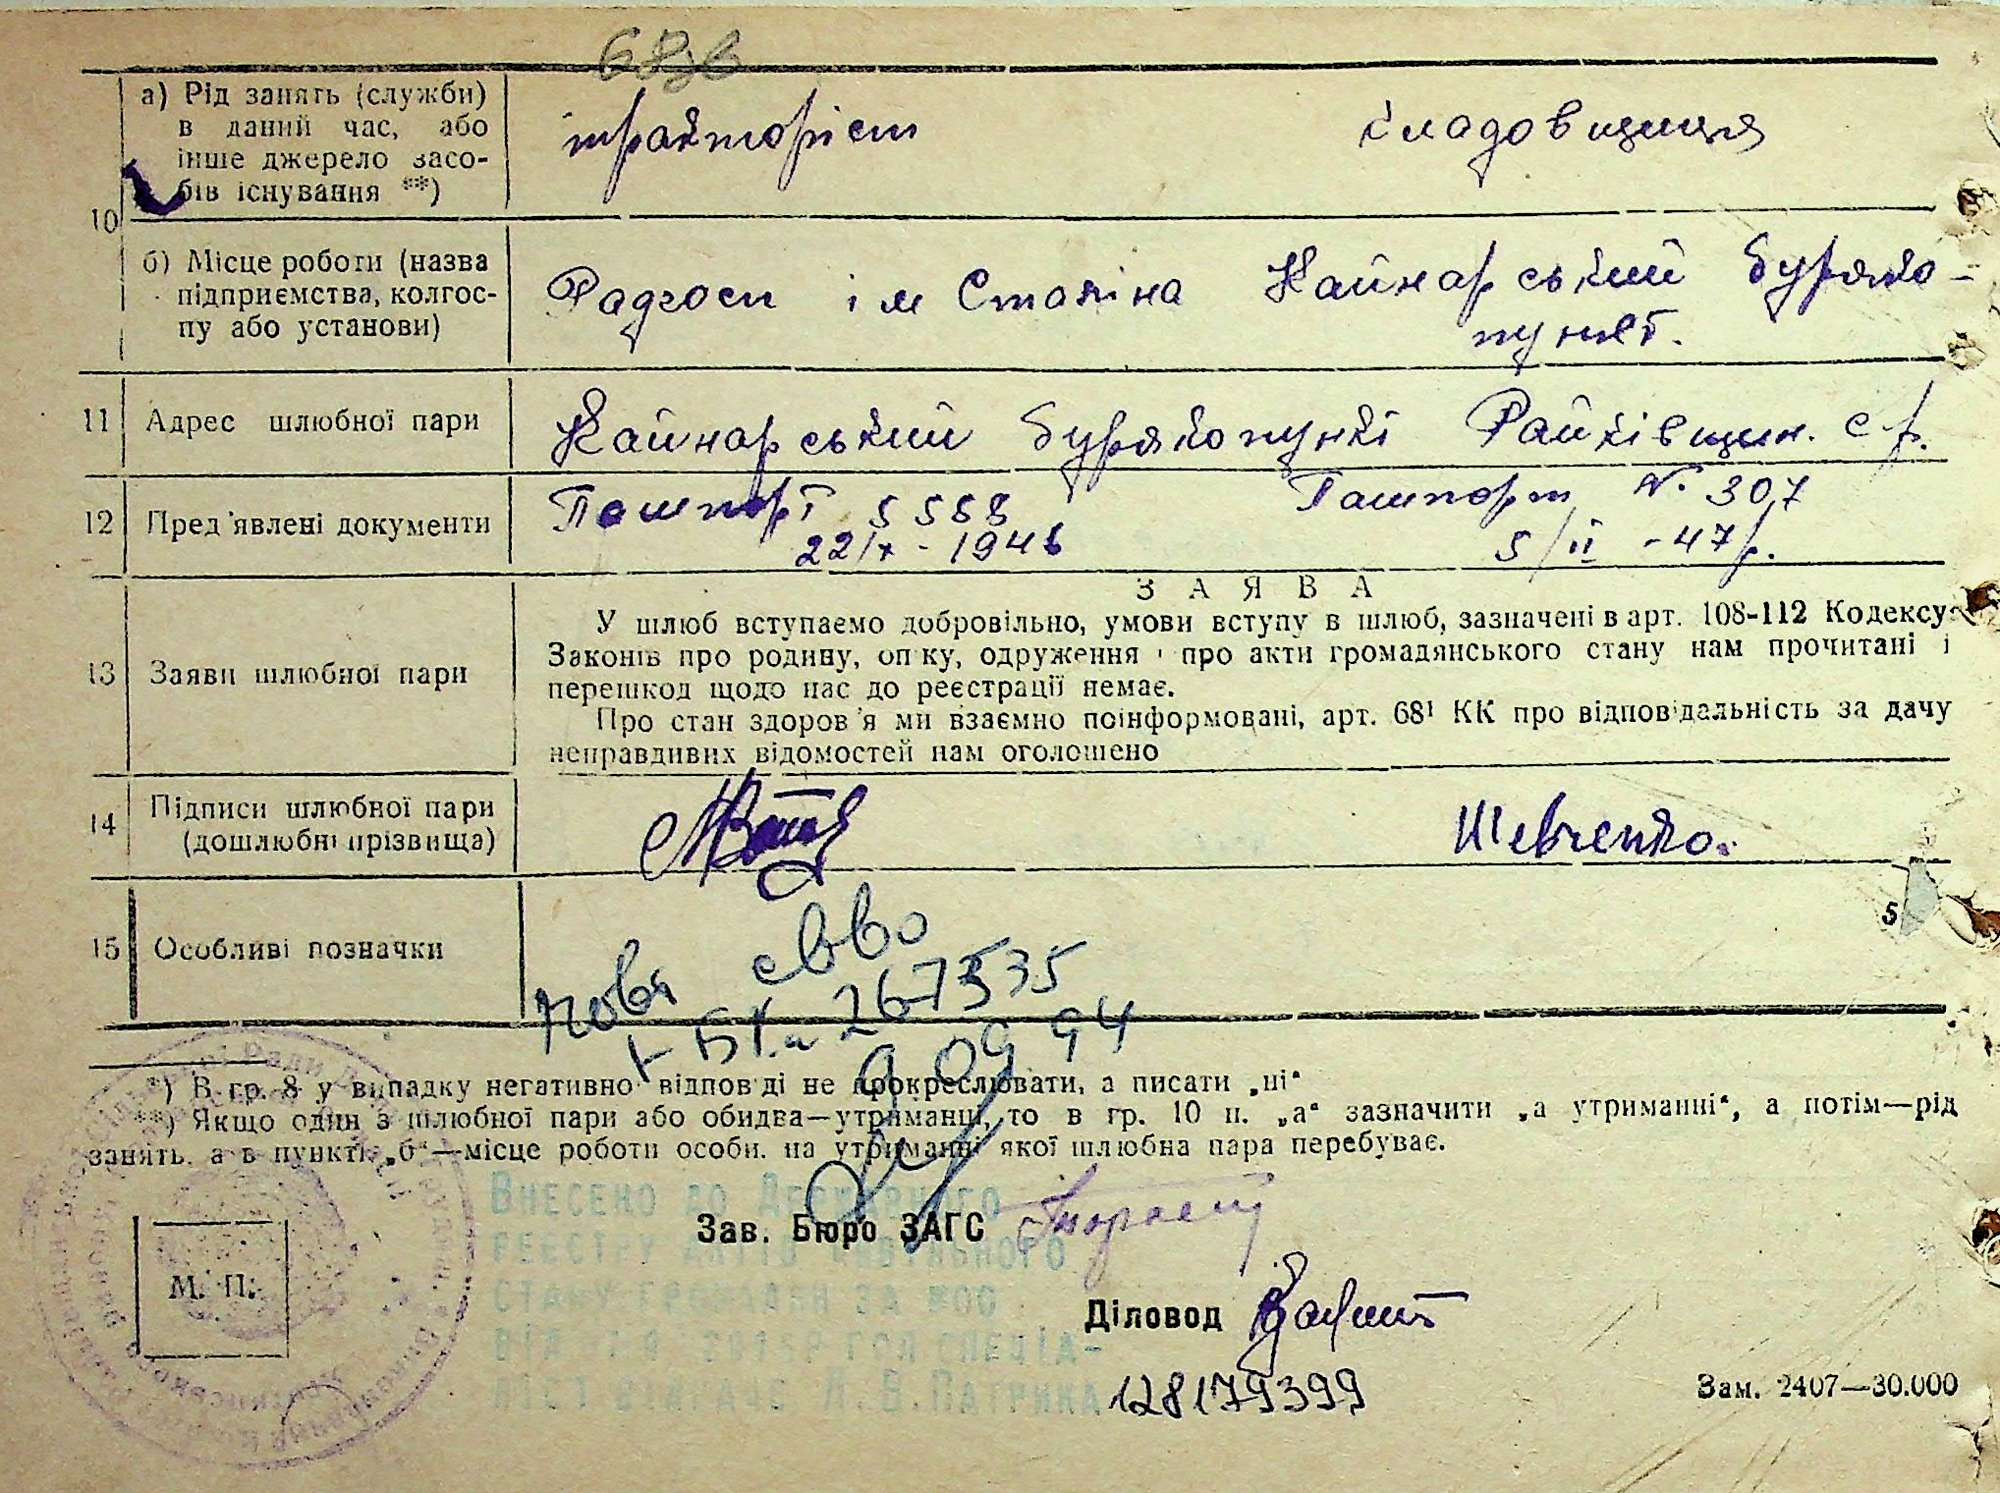 а) Рід занять (служби)
в даний час, або
інше джерело засо-
бів існування **)
тракторіст
кладовщиця
10
б) Місце роботи (назва
підприємства, колгос-
пу або установи)
Радгосп ім Сталіна
Кайнарський буряко-
пункт.
11 Адрес шлюбної пари
Кайнарський бурякопункт Райківщин. с/р.
12 Пред'явлені документи
Пашпорт 5558
22/X - 1946
Пашпорт № 307
5/II -47р.
13 Заяви шлюбної пари
ЗАЯВА
У шлюб вступаємо добровільно, умови вступу в шлюб, зазначені в арт. 108-112 Кодексу
Законів про родину, опіку, одруження і про акти громадянського стану нам прочитані і
перешкод щодо нас до реєстрації немає.
Про стан здоров'я ми взаємно поінформовані, арт. 68¹ КК про відповідальність за дачу
неправдивих відомостей нам оголошено
14 Підписи шлюбної пари
(дошлюбні прізвища)
Шевченко.
15 Особливі позначки
5
нове св-во
267535
09 94
*) В гр. 8 у випадку негативної відповіді не прокреслювати, а писати „ні“
**) Якщо один з шлюбної пари або обидва—утриманці, то в гр. 10 п. „а“ зазначити „а утриманні“, а потім—рід
занять, а в пункті „б“—місце роботи особи, на утриманні якої шлюбна пара перебуває.
Внесено до Державного
реєстру актів цивільного
стану громадян за №00
Зав. Бюро ЗАГС
М. П.
Діловод
128179399
Зам. 2407—30.000